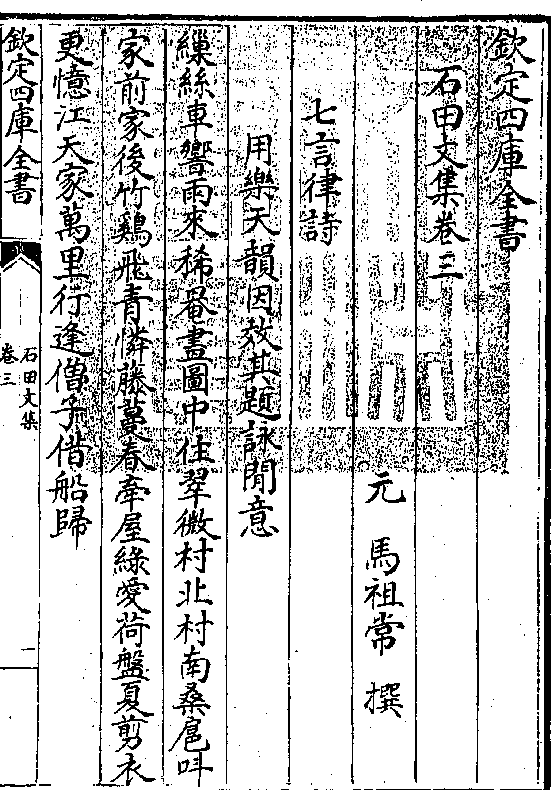 欽定四庫全書
石田文集卷三
元 馬祖常 撰
七言律詩
用樂天韻因效其題詠閒意
繅絲車響雨來稀罨畫圖中住翠微村北村南桑扈呌
家前家後竹鷄飛青憐藤蔓春牽屋綠愛荷盤夏剪衣
更憶江天家萬里行逢僧子借船歸
欽定四庫全書
石田文集
卷三
一